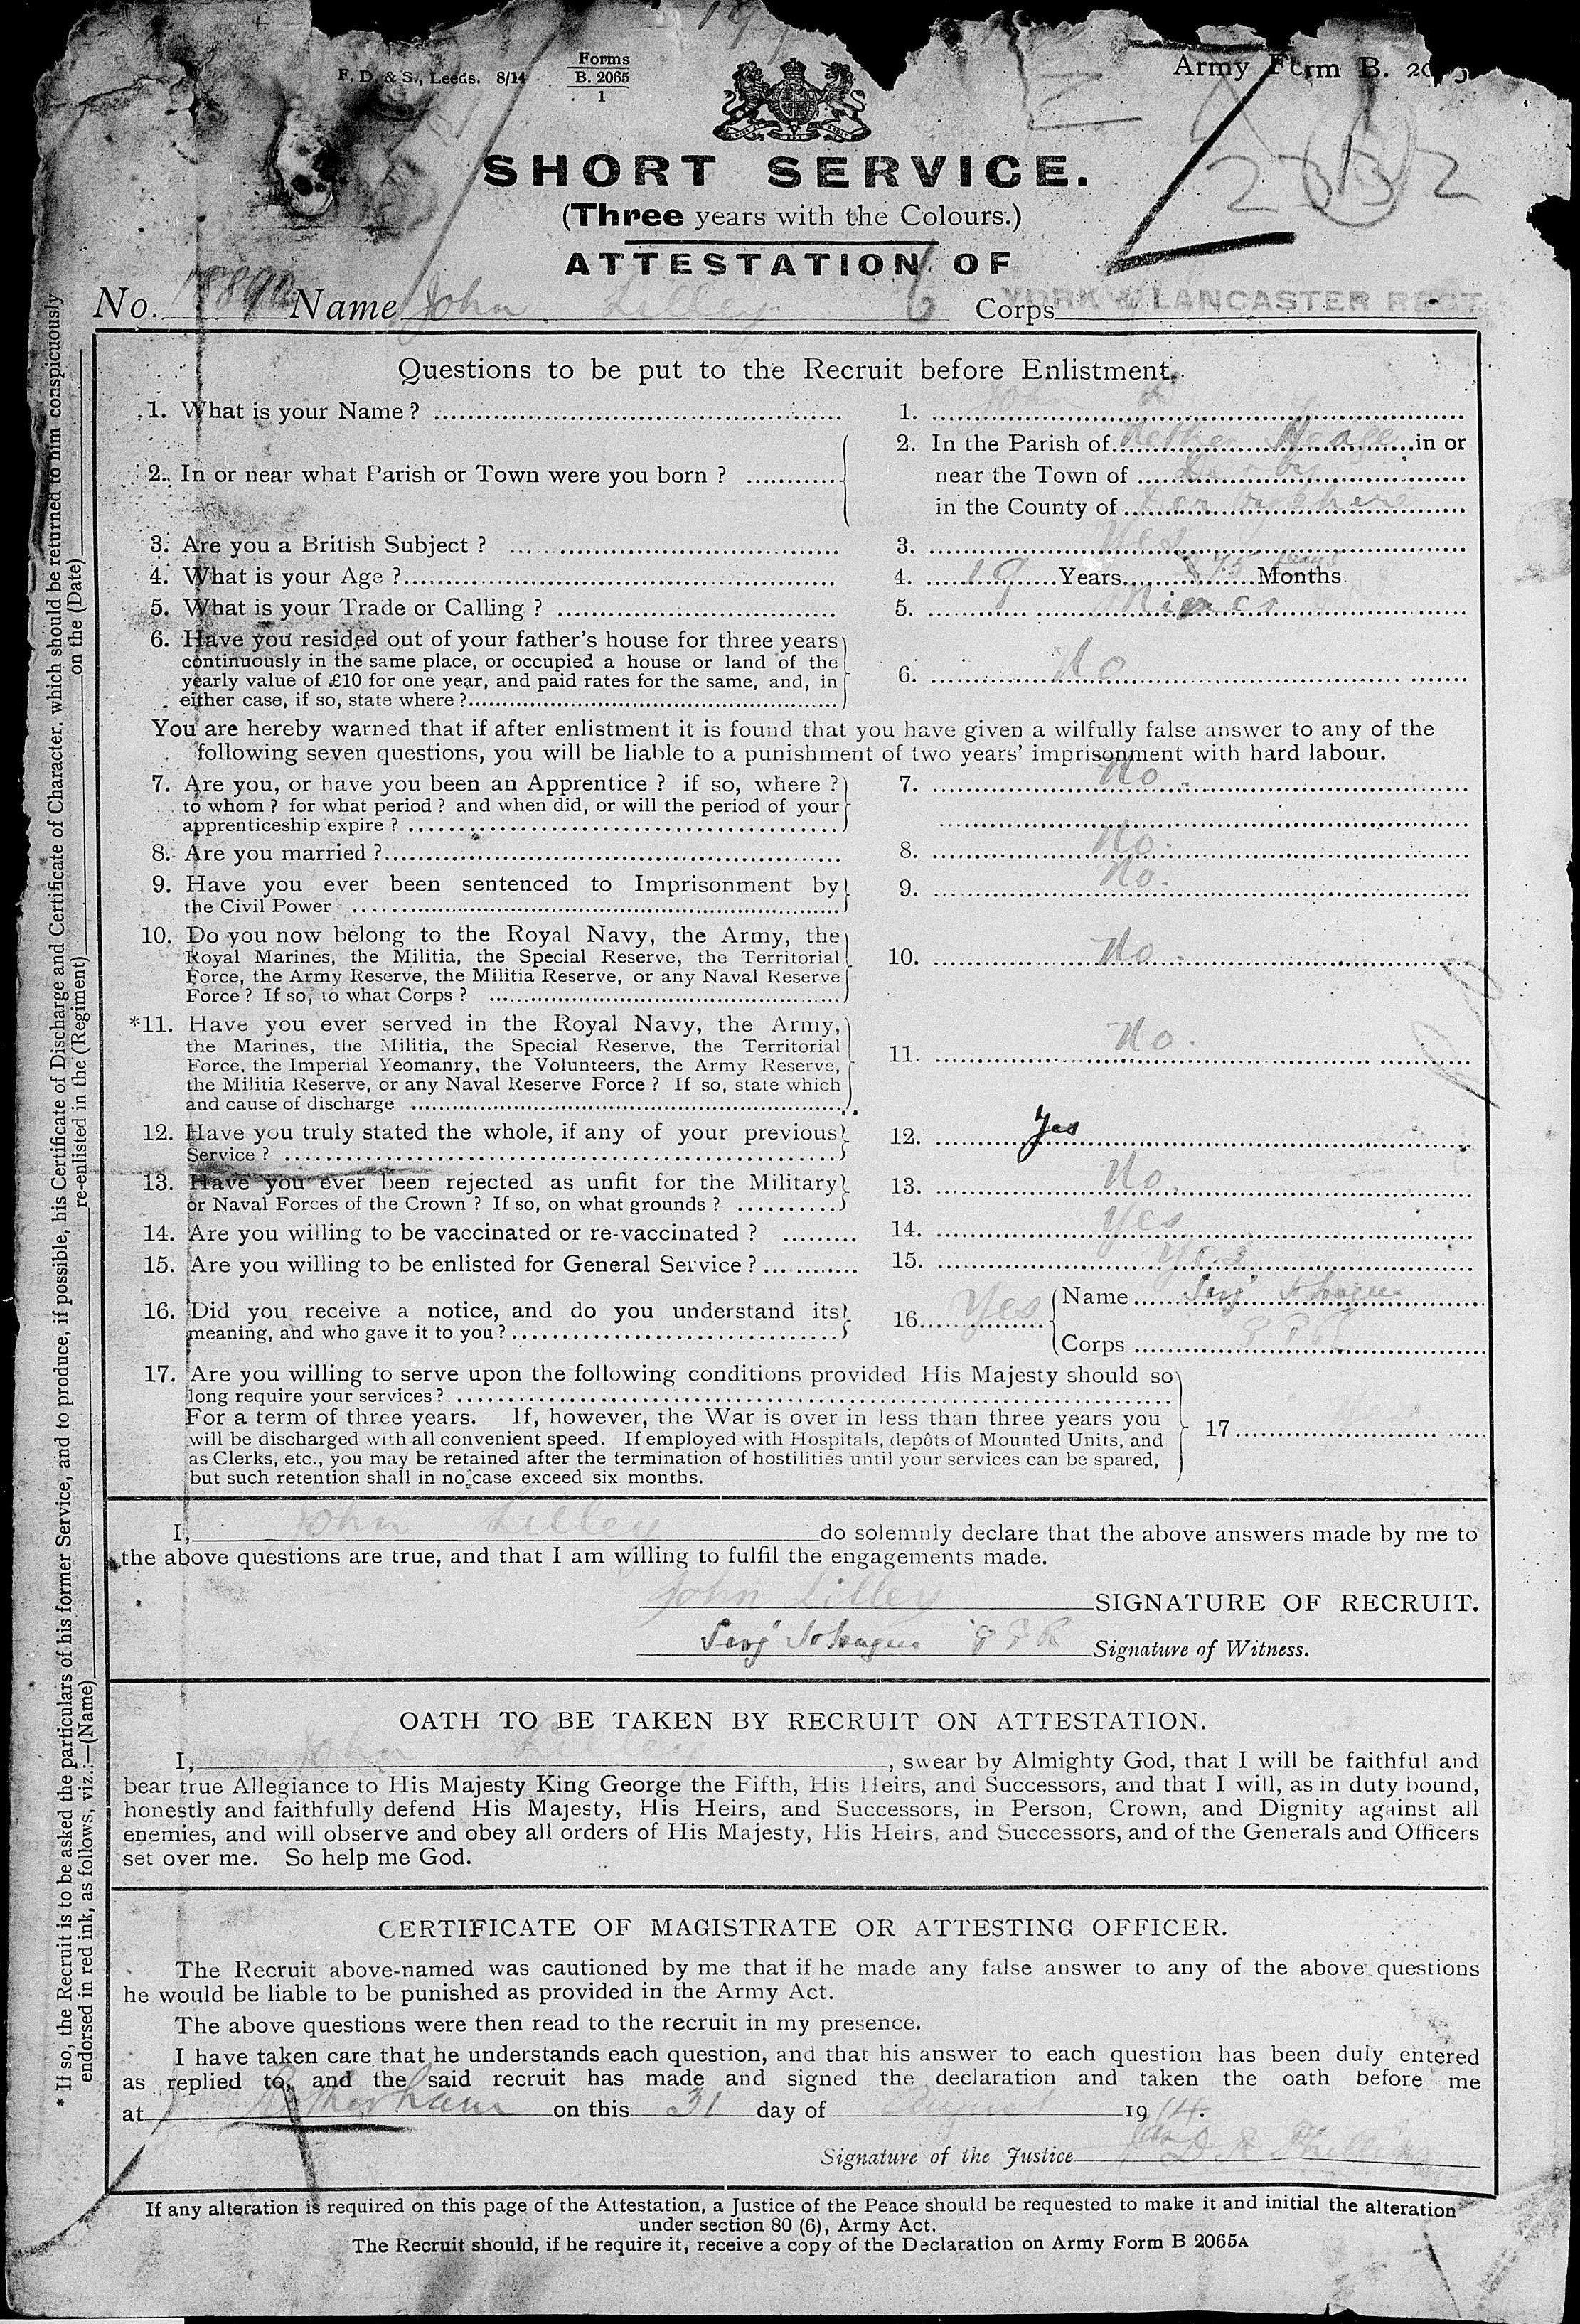 F. D. & S., Leeds. 8/14
Forms
B. 2065
1
Army Form B.
SHORT SERVICE.
(Three years with the Colours.)
ATTESTATION OF
No. Name John Lilley Corps YORK & LANCASTER REGT
Questions to be put to the Recruit before Enlistment.
1. What is your Name? 1. John
2. In or near what Parish or Town were you born? 2. In the Parish of Nether Heage in or
near the Town of Derby
in the County of Derbyshire
3. Are you a British Subject? 3. Yes
4. What is your Age? 4. 19 Years Months
5. What is your Trade or Calling? 5. Miner
6. Have you resided out of your father's house for three years
continuously in the same place, or occupied a house or land of the
yearly value of £10 for one year, and paid rates for the same, and, in
either case, if so, state where? 6. No
You are hereby warned that if after enlistment it is found that you have given a wilfully false answer to any of the
following seven questions, you will be liable to a punishment of two years' imprisonment with hard labour.
7. Are you, or have you been an Apprentice? if so, where? 7. No.
to whom? for what period? and when did, or will the period of your
apprenticeship expire?
8. Are you married? 8. No.
9. Have you ever been sentenced to Imprisonment by 9. No.
the Civil Power
10. Do you now belong to the Royal Navy, the Army, the
Royal Marines, the Militia, the Special Reserve, the Territorial 10. No.
Force, the Army Reserve, the Militia Reserve, or any Naval Reserve
Force? If so, to what Corps?
*11. Have you ever served in the Royal Navy, the Army,
the Marines, the Militia, the Special Reserve, the Territorial
Force, the Imperial Yeomanry, the Volunteers, the Army Reserve, 11. No.
the Militia Reserve, or any Naval Reserve Force? If so, state which
and cause of discharge
12. Have you truly stated the whole, if any of your previous 12. Yes
Service?
13. Have you ever been rejected as unfit for the Military 13. No.
or Naval Forces of the Crown? If so, on what grounds?
14. Are you willing to be vaccinated or re-vaccinated? 14. Yes
15. Are you willing to be enlisted for General Service? 15. Yes
16. Did you receive a notice, and do you understand its 16. Yes Name Serj
meaning, and who gave it to you? Corps
17. Are you willing to serve upon the following conditions provided His Majesty should so
long require your services?
For a term of three years. If, however, the War is over in less than three years you 17
will be discharged with all convenient speed. If employed with Hospitals, depôts of Mounted Units, and
as Clerks, etc., you may be retained after the termination of hostilities until your services can be spared,
but such retention shall in no case exceed six months.
I, John Lilley do solemnly declare that the above answers made by me to
the above questions are true, and that I am willing to fulfil the engagements made.
John Lilley SIGNATURE OF RECRUIT.
Serj Signature of Witness.
OATH TO BE TAKEN BY RECRUIT ON ATTESTATION.
I, John Lilley, swear by Almighty God, that I will be faithful and
bear true Allegiance to His Majesty King George the Fifth, His Heirs, and Successors, and that I will, as in duty bound,
honestly and faithfully defend His Majesty, His Heirs, and Successors, in Person, Crown, and Dignity against all
enemies, and will observe and obey all orders of His Majesty, His Heirs, and Successors, and of the Generals and Officers
set over me. So help me God.
CERTIFICATE OF MAGISTRATE OR ATTESTING OFFICER.
The Recruit above-named was cautioned by me that if he made any false answer to any of the above questions
he would be liable to be punished as provided in the Army Act.
The above questions were then read to the recruit in my presence.
I have taken care that he understands each question, and that his answer to each question has been duly entered
as replied to, and the said recruit has made and signed the declaration and taken the oath before me
at Rotherham on this 31 day of August 1914.
Signature of the Justice
If any alteration is required on this page of the Attestation, a Justice of the Peace should be requested to make it and initial the alteration
under section 80 (6), Army Act.
The Recruit should, if he require it, receive a copy of the Declaration on Army Form B 2065A
* If so, the Recruit is to be asked the particulars of his former Service, and to produce, if possible, his Certificate of Discharge and Certificate of Character, which should be returned to him conspicuously
endorsed in red ink, as follows, viz.:—(Name) re-enlisted in the (Regiment) on the (Date)